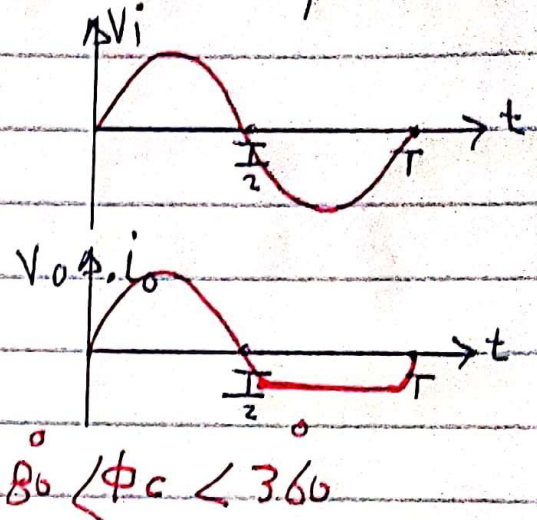 Vi
t
T/2
T
Vo, io
t
T/2
T
80° < Φc < 360°